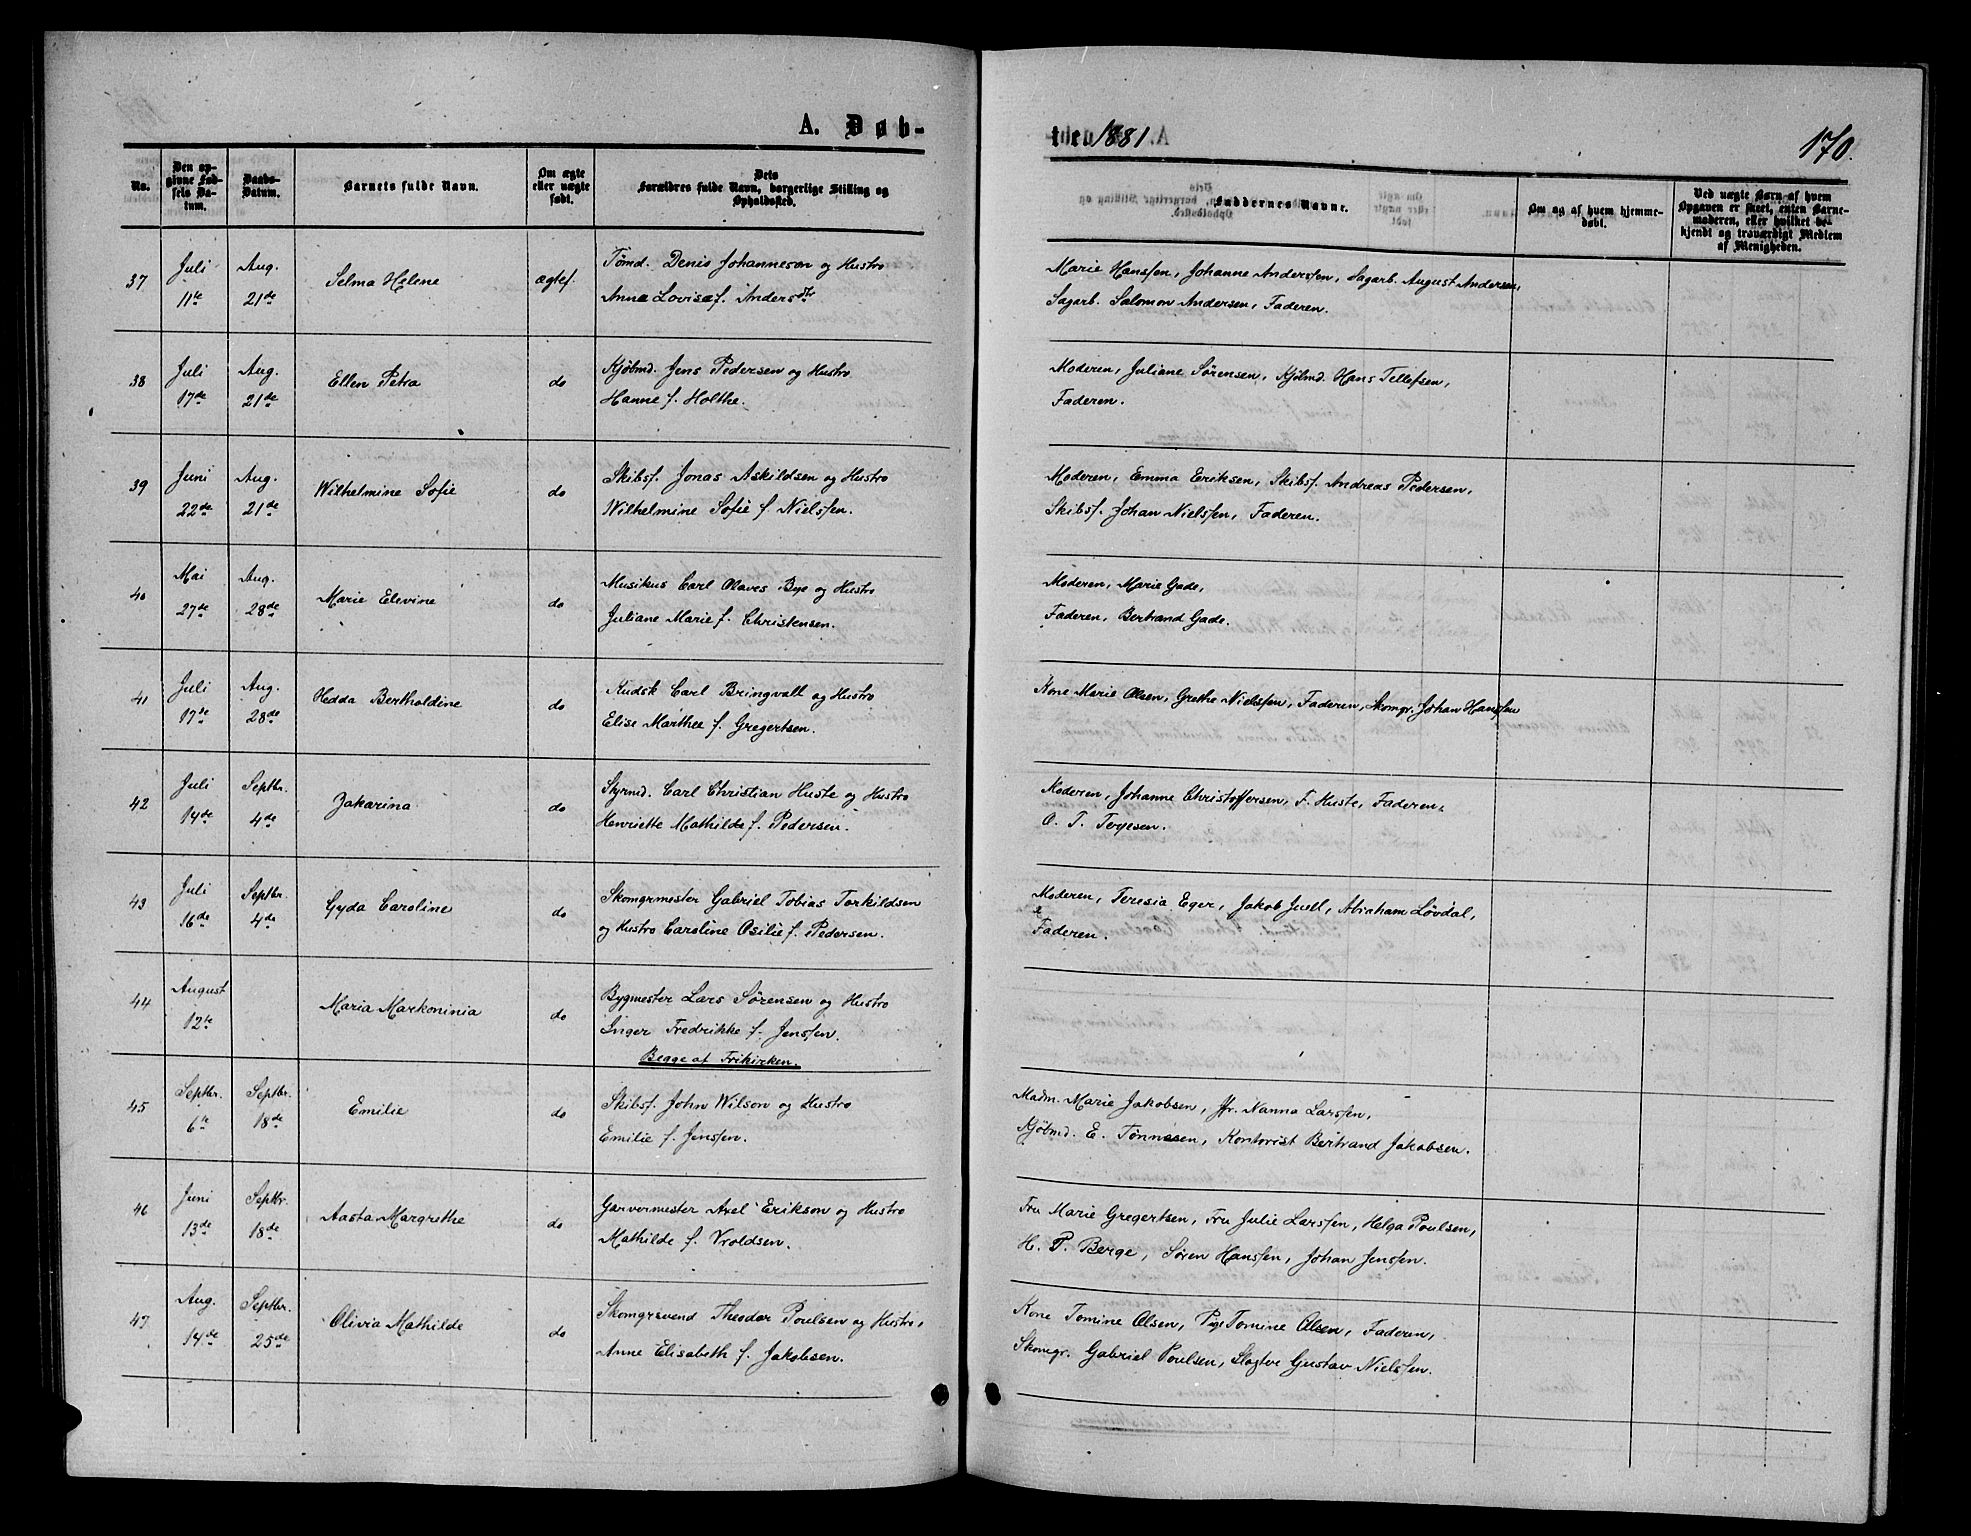 A. Døb-
te 1881.
170.
No.
Den op-
givne Fød-
sels Da-
tum.
Daabs-
Datum.
Barnets fulde Navn.
Om ægte
eller uægte
født.
Dets
Forældres fulde Navn, borgerlige Stilling og
Opholdssted.
Faddernes Navne.
Om og af hvem hjemme-
døbt.
Ved uægte Børn af hvem
Opgaven er skeet, enten Barne-
moderen, eller hvilket be-
kjendt og troværdigt Medlem
af Menigheden.
37 Juli 11te Aug. 21de Selma Helene ægtef.
Tømd. Denis Johannesen og Hustro
Anna Lovise f. Andersdtr
Marie Hansſen, Johanne Andersſen, Sagarb. August Andersen,
Sagarb. Salomon Andersen, Faderen.
38 Juli 17de Aug. 21de Ellen Petra do
Kjøbmd. Jens Pedersen og Hustro
Hanne f. Holthe.
Moderen, Juliane Sørensen, Kjøbmd. Hans Tellefsen,
Faderen.
39 Juni 22de Aug. 21de Wilhelmine Sofie do
Skibsf. Jonas Askildsen og Hustro
Wilhelmine Sofie f. Nielsſen.
Moderen, Emma Eriksen, Skibsf. Andreas Pedersen,
Skibsf. Johan Nielsſen, Faderen.
40 Mai 27de Aug. 28de Marie Elevine do
Musikus Carl Olaves Bye og Hustro
Juliane Marie f. Christensen.
Moderen, Marie Gade,
Faderen, Bertrand Gade.
41 Juli 17de Aug. 28de Hedda Bertholdine do
Kudsk Carl Bringvall og Hustro
Elise Marthee f. Gregertsen.
Kone Marie Olsen, Grethe Nielsſen, Faderen, Skomgr. Johan Hansſen
42 Juli 14de Septbr. 4de Zakarina do
Styrmd. Carl Christian Huste og Hustro
Henriette Mathilde f. Pedersen.
Moderen, Johanne Christoffersen, F. Huste, Faderen,
O. T. Terjesen.
43 Juli 16de Septbr. 4de Gyda Caroline do
Skomgrmester Gabriel Tobias Torkildsen
og Hustro Caroline Osilie f. Pedersen.
Moderen, Teresia Eger, Jakob Juell, Abraham Løvdal,
Faderen.
44 August 12te Maria Markoninia do
Bygmester Lars Sørensen og Hustro
Inger Fredrikke f. Jensſen.
Begge af Frikirken.
45 Septbr. 6te Septbr. 18de Emilie do
Skibsf. John Wilson og Hustro
Emilie f. Jensſen.
Madm. Marie Jakobsen, Jfr. Nanna Larsſen,
Kjøbmd. E. Tønnesen, Kontorist Bertrand Jakobsen.
46 Juni 13de Septbr. 18de Aasta Margrethe do
Garvermester Axel Erikson og Hustro
Mathilde f. Vroldsen.
Fru Marie Gregertsen, Fru Julie Larsſen, Helga Poulsen,
H. P. Berge, Søren Hansſen, Johan Jensſen.
47 Aug. 14de Septbr. 25de Olivia Mathilde do
Skomgrsvend Theodor Poulsen og Hustro,
Anne Elisabeth f. Jakobsen.
Kone Tomine Olsen, Pige Tomine Olsen, Faderen,
Skomgr. Gabriel Poulsen, Slagter Gustav Nielsſen.